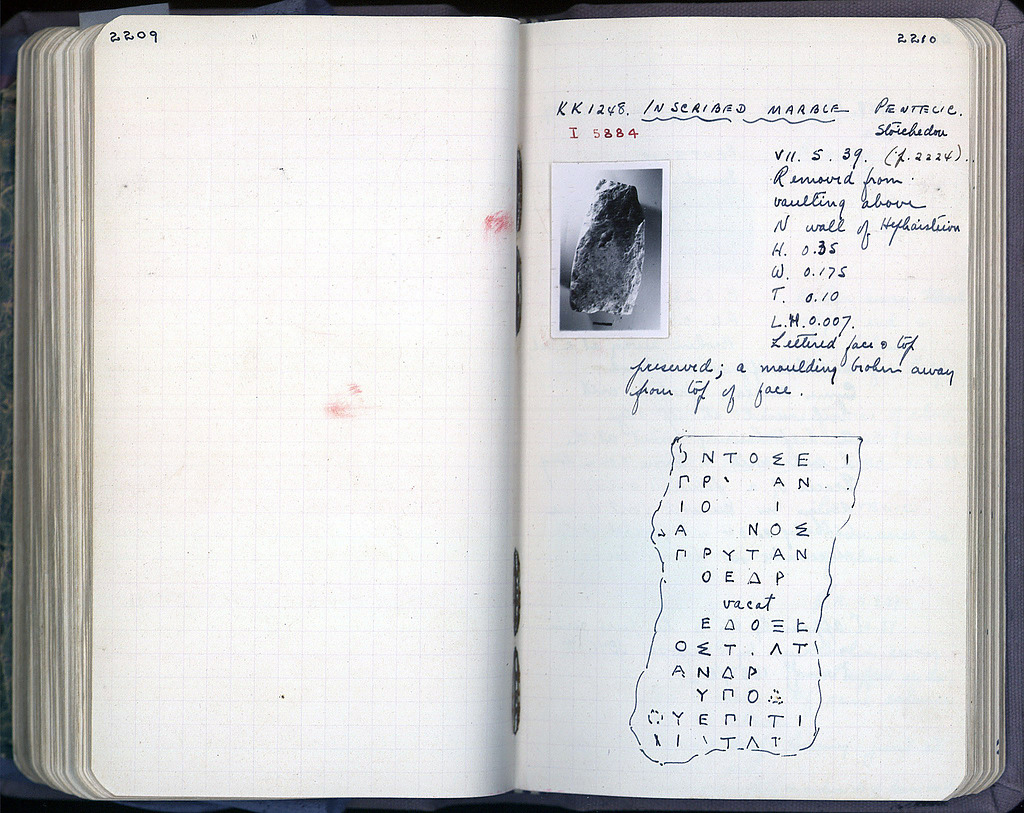 2209
2210
KK 1248. INSCRIBED MARBLE PENTELIC.
I 5884
Stoichedon
VII. 5. 39. (p. 2224)..
Removed from
vaulting above
N wall of Hephaisteion
H. 0.35
W. 0.175
T. 0.10
L.H. 0.007.
Lettered face & top
preserved; a moulding broken away
from top of face.
Ο Ν Τ Ο Σ Ε Ι
Π Ρ Α Ν .
Ι Ο Ι
Α Ν Ο Σ
Π Ρ Υ Τ Α Ν
Ο Ε Δ Ρ
vacat
Ε Δ Ο Ξ Ε
Ο Σ Τ . Λ Τ
Α Ν Δ Ρ
Υ Π Ο Ω
Ο Υ Ε Π Ι Τ Ι
Ι Τ Λ Τ